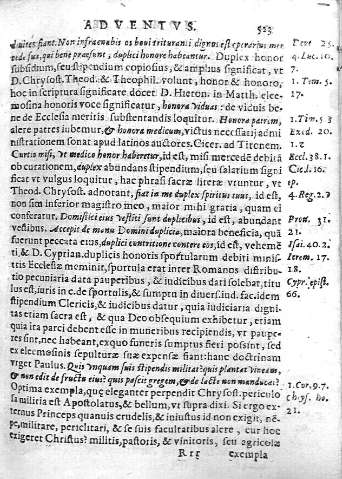 ADVENTVS. 523
diuites fiant. Non infraenabis os boui trituranti dignus est operarius mer
cede sua, qui bene praesunt, duplici honore habeantur. Duplex honor
subsidium, seu stipendium copiosius, & amplius significat, vt
D. Chrysost. Theod. & Theophil. volunt, honor & honoro,
hoc in scriptura significare docet D. Hieron. in Matth. elee
mosina honoris voce significatur, honora viduas: de viduis be
ne de Ecclesia meritis substentandis loquitur. Honora patrem,
alere patres iubemur, & honora medicum, victus necessarij admi
nistrationem sonat apud latinos auctores. Cicer. ad Tironem.
Curtio misi, vt medico honor haberetur, id est, misi mercede debita
ob curationem, duplex abundans stipendium, seu salarium signi
ficat vt vulgus loquitur, hac phrasi sacrae literae vtuntur, vt
Theod. Chrysost. adnotant, fiat in me duplex spiritus tuus, id est,
non sim inferior magistro meo, maior mihi gratia, quam ei
conferatur. Domestici eius vestiti sunt duplicibus, id est, abundant
vestibus. Accepit de manu Domini duplicia, maiora beneficia, quā
fuerunt peccata eius, duplici contritione contere eos, id est, vehemē
ti, & D. Cyprian. duplicis honoris sportularum debiti minis-
tris Ecclesiae meminit, sportula erat inter Romanos distribu-
tio pecuniaria data pauperibus, & iudicibus dari solebat, titu
lus est, iuris in c. de sportulis, & sumptu in diuers. iud. fac. idem
stipendium Clericis, & iudicibus datur, quia iudiciaria digni
tas etiam sacra est, & qua Deo obsequium exhibetur, etiam
quia ita parci debent esse in muneribus recipiendis, vt paupe-
res sint, nec habeant, ex quo funeris sumptus fieri possint, sed
ex eleemosinis sepulturae suae expensae fiant: hanc doctrinam
vrget Paulus. Quis vnquam suis stipendiis militat? quis plantat vineam,
& non edit de fructu eius? quis pascit gregem, & de lacte non manducat?
Optima exempla, quae eleganter perpendit Chrysost. periculo
sa militia est Apostolatus, & bellum, vt supra dixi. Si ergo ex-
ternus Princeps quanuis crudelis, & iniustus id non exigit, nē-
pe, militare, periclitari, & se suis facultatibus alere, cur hoc
exigeret Christus? militis, pastoris, & vinitoris, seu agricolae
Rrr exempla
Deut. 25.
4. Luc. 10.
7.
1. Tim. 5.
17.
1. Tim. 5 3
Exod. 20.
12.
Eccl. 38. 1.
Cic. l. 16.
ep.
4. Reg. 2. 9
Prou. 31.
21.
Isai. 40. 2.
Ierem. 17.
18.
Cypr. epist.
66.
1. Cor. 9. 7.
Chrys. ho.
21.